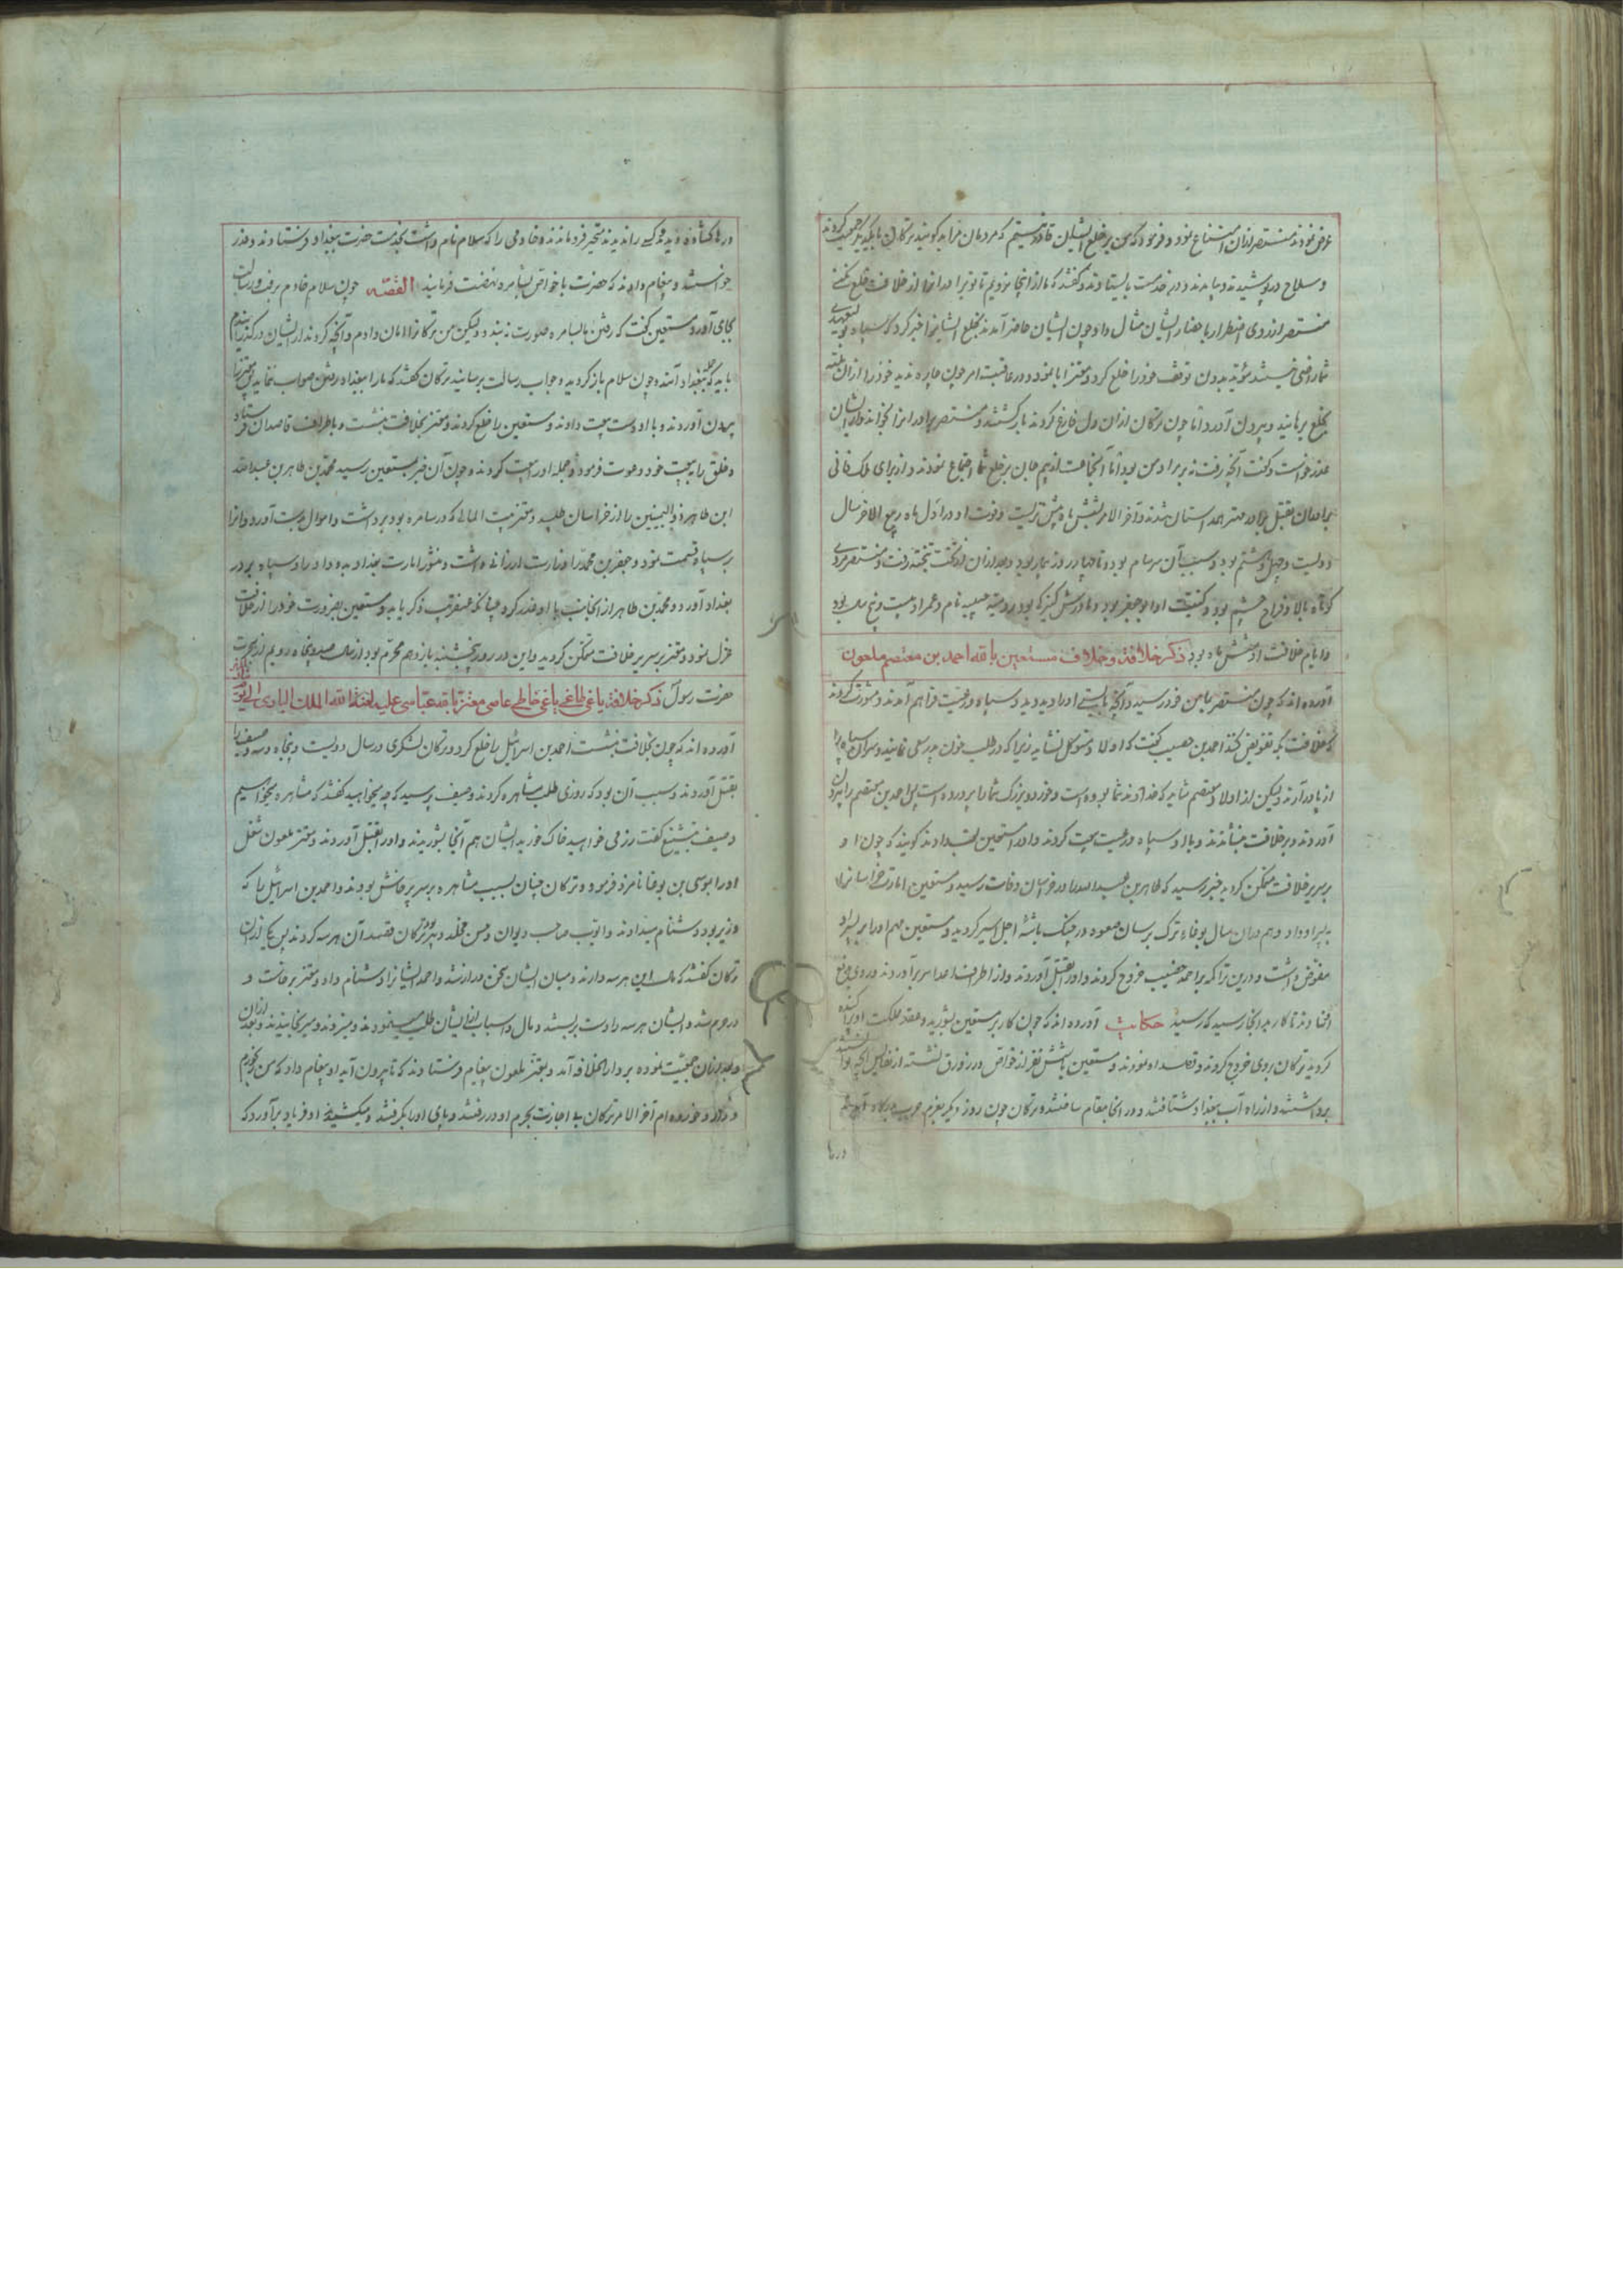 عرض نمودند منتصر ازان امتناع نمود و فرمود که من بر خلع ایشان قادر نیستم که مردمان مرا بد گویند ترکان با یکدیگر جمعیت کردند
و سلاح در پوشیدند و بیامدند و در خدمت بایستادند و گفتند که ما از اینجا نرویم تا تو برادرانرا از خلافت خلع نکنی
منتصر از روی اضطرار باحضار ایشان مثال داد چون ایشان حاضر آمدند بخلع ایشانرا خبر کرد که سپاه
شما راضی نمیشد مؤید بدون توقف خود را خلع کرد و معتز ابا نمود و در عاقبت امر چون چاره ندید خود را ازان
بخلع برهانید و بیرون آورد اما چون ترکان ازان دل فارغ کردند بازگشتند و منتصر برادرانرا بخواند و از ایشان
عذر خواست و گفت آنچه رفت نه بر مراد من بود اما آنجماعت از بیم جان بر خلع شما اجتماع نمودند و از برای ملک فانی
برادران بقتل برادر مهتر همداستان شدند و آخر الامر بشش ماه بیش نزیست و فوت او در اول ماه ربیع الاخر سال
دویست و چهل و هشتم بود و سبب آن سرسام بود و تا چهار روز بیمار بود و بعد ازان از تخت بتخته رفت و منتصر مردی
کوتاه بالا و فراخ چشم بود و کنیت او ابو جعفر بود و مادرش کنیزکه بود رومیه حبیبه نام و عمر او بیست و پنج سال بود
و ایام خلافت او شش ماه بود ذکر خلافة و خلاف مستعین بالله احمد بن معتصم ملعون
آورده اند که چون منتصر بمامن خود رسید و آنچه بایستی او را دید دید و سپاه و رعیت فراهم آمدند و مشورت کردند
که خلافت بکه تفویض کنند احمد بن خصیب گفت که اولاد متوکل نشاید زیرا که در طلب خون پدر سعی نمایند و سران سپاه را
از پا در آرند و لیکن از اولاد معتصم شاید که خداوند شما بوده است و خورد و بزرگ شما را پرورده است پس احمد بن معتصم را بیرون
آوردند و بر خلافت بنشاندند و بالو سپاه و رعیت بیعت کردند و او را مستعین لقب دادند گویند که چون او
بر سریر خلافت متمکن گردید خبر رسید که طاهر بن عبدالله در خراسان وفات رسید و مستعین امارت خراسانرا
به پسر او داد و هم در ان سال بوغاء ترک برسان صعوه در چنگ باشۀ اجل اسیر گردید و مستعین مهم او را بر پسر او
مفوض داشت و درین تراکمه بر احمد خصیب خروج کردند و او را بقتل آوردند و از اطراف اعدا سر بر آوردند و روی بدفع
افتادند تا کار بدانجا رسید که رسید حکایت آورده اند که چون کار بر مستعین بشورید و عقد مملکت او پراکنده
گردید ترکان بروی خروج کردند و قصد او نمودند و مستعین با شش نفر از خواص در زورق نشسته از نفایس آنچه توانستند
برداشتند و از راه آب ببغداد شتافتند و در آنجا مقام ساختند و ترکان چون روز دیگر بعزم حرب بدرگاه آمدند
درها
درها گشاده دیدند و کسی را ندیدند متحیر فرو ماندند و خادمی را که سلام نام داشت بخدمت حضرت ببغداد فرستادند و عذر
خواستند و پیغام دادند که حضرت با خواص بسامره نهضت فرمایند القصه چون سلام خادم برفت و رسالت
بجای آورد مستعین گفت که رفتن ما بسامره صورت نبندد و لیکن من ترکانرا امان دادم و آنچه کردند از ایشان درگذرانیدم
باید که جمله ببغداد آیند و چون سلام بازگردید و جواب رسالت برسانید ترکان گفتند که ما را ببغداد رفتن صواب ننماید پس معتز را
بیرون آوردند و با او دست بیعت دادند و مستعین را خلع کردند و معتز بخلافت بنشست و باطراف قاصدان فرستاد
و خلق را به بیعت خود دعوت فرمود و جمله او را بیعت کردند و چون آن خبر بمستعین رسید محمد بن طاهر بن عبدالله
ابن طاهر ذو الیمینین را از خراسان طلبید و معتز بیت المالی که در سامره بود برداشت و اموال بدست آورد و آنرا
بر سپاه قسمت نمود و جعفر بن محمد را وزارت ارزانی داشت و منشور امارت بغداد بدو داد و او سپاه بر در
بغداد آورد و محمد بن طاهر از آنجانب با او غدر کرد چنانکه عنقریب ذکر یابد و مستعین بضرورت خود را از خلافت
عزل نمود و معتز بر سریر خلافت متمکن گردید و این در روز پنجشنبه یازدهم محرم بود از سال دویست و پنجاه و دویم از هجرت
حضرت رسول ذکر خلافة یاغی طاغی باغی خاطی عاصی معتز بالله عباسی علیه لعنة الله الملک الباری الی یوم
آورده اند که چون بخلافت بنشست احمد بن اسرائیل را خلع کرد و ترکان لشکری در سال دویست و پنجاه و سه وصیف را
بقتل آوردند و سبب آن بود که روزی طلب مشاهره کردند وصیف پرسید که چه میخواهید گفتند که مشاهره میخواهیم
وصیف بتشنیع گفت رزمی خواهید خاک خورید ایشان هم آنجا بشوریدند و او را بقتل آوردند و معتز ملعون شغل
او را بموسی بن بوغا نامزد فرمود و ترکان چنان بسبب مشاهره بر سر پرخاش بودند و احمد بن اسرائیل را که
وزیر بود دشنام میدادند و ایوب صاحب دیوان و حسن مخلد دبیر بود ترکان قصد آن هر سه کردند پس یکی از ان
ترکان گفتند که مال این هر سه دارند و میان ایشان سخن دراز شد و احمد ایشانرا دشنام داد و معتز برخاست و
در حرم شد و ایشان هر سه را دست ببستند و مال و اسباب از ایشان طلب مینمودند و میزدند و میرنجانیدند و بعد ازان
جمعیت نموده بر دار الخلافه آمد و بمعتز ملعون پیغام فرستادند که تا بیرون آید او پیغام داد که من رنجورم
و دارو خورده ام آخر الامر ترکان بی اجازت بحرم او در رفتند و پای او را بگرفتند و میکشیدند او فریاد برآورد که